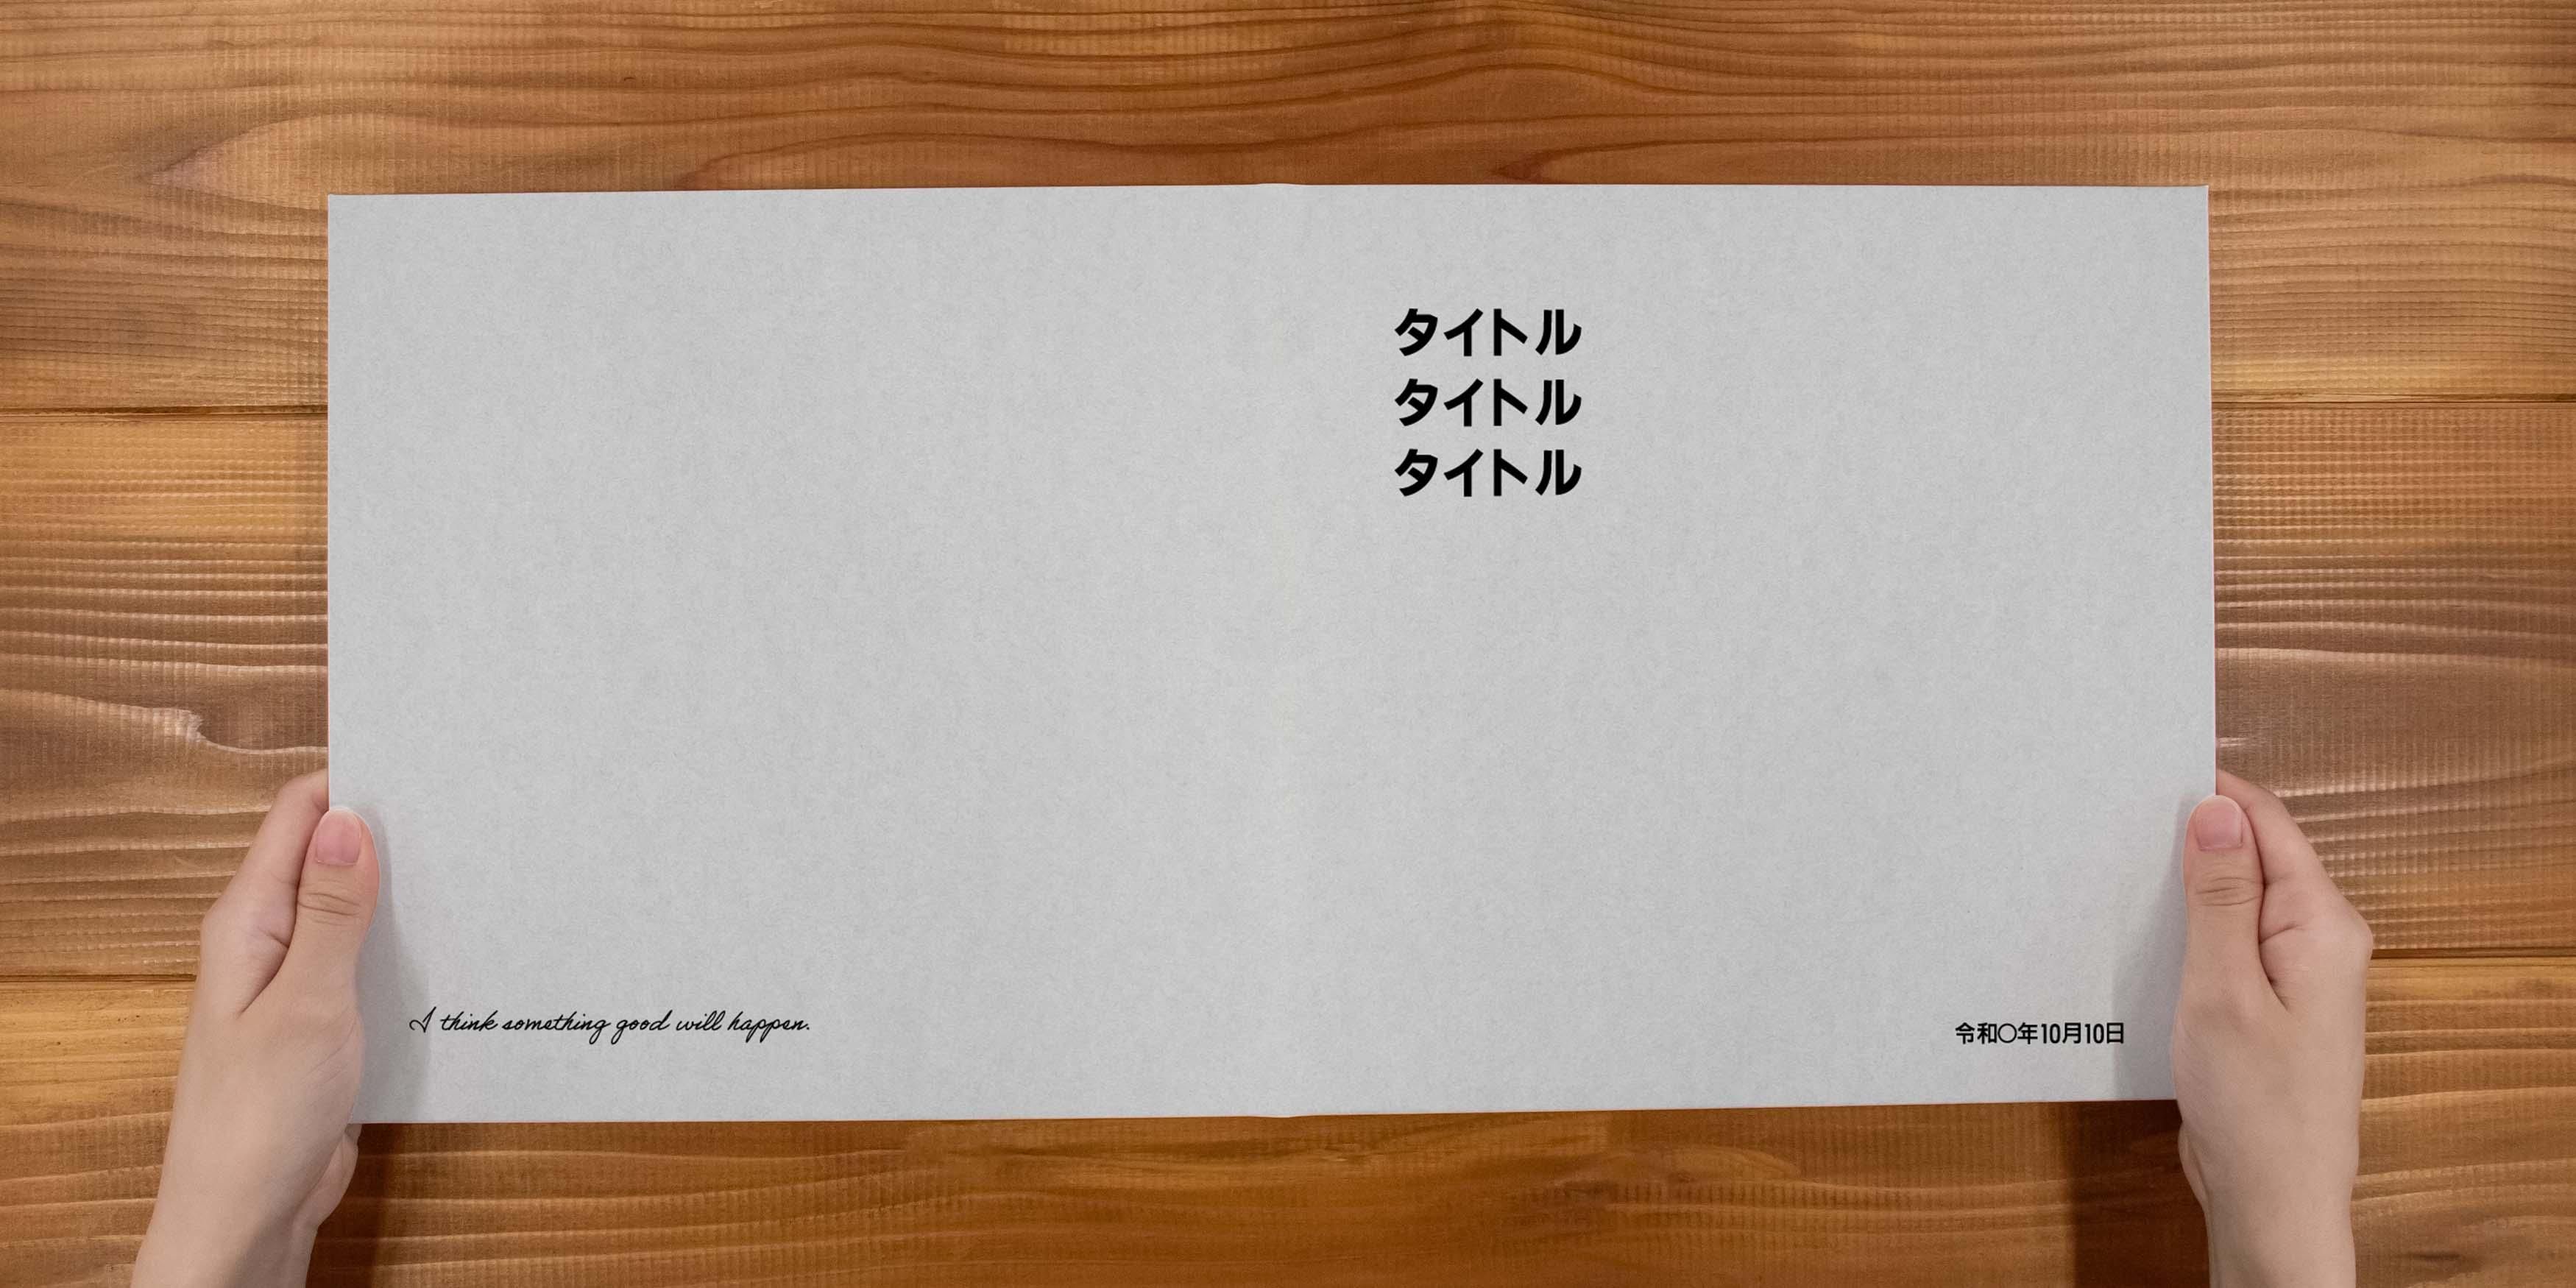 タイトル
タイトル
タイトル
I think something good will happen.
令和〇年10月10日